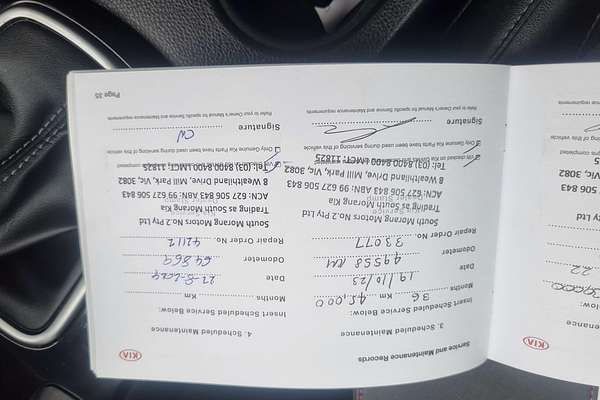 Service and Maintenance Records
KIA
3. Scheduled Maintenance
Insert Scheduled Service Below:
36 Months 45,000 Km
Date 19/10/23
Odometer 49558 KM
Repair Order No. 33077
South Morang Motors No.2 Pty Ltd
Trading as South Morang Kia
ACN: 627 506 843 ABN: 99 627 506 843
8 Wealthiland Drive, Mill Park, Vic, 3082
Tel: (03) 8400 8400 LMCT: 11825
Only Genuine Kia Parts have been used during servicing of this vehicle
Signature
Refer to your Owner's Manual for specific Service and Maintenance requirements
4. Scheduled Maintenance
Insert Scheduled Service Below:
Months Km
Date 27-8-2024
Odometer 64869
Repair Order No. 42117
South Morang Motors No.2 Pty Ltd
Trading as South Morang Kia
ACN: 627 506 843 ABN: 99 627 506 843
8 Wealthiland Drive, Mill Park, Vic, 3082
Tel: (03) 8400 8400 LMCT: 11825
Only Genuine Kia Parts have been used during servicing of this vehicle
Signature
Refer to your Owner's Manual for specific Service and Maintenance requirements
Page 35
KIA